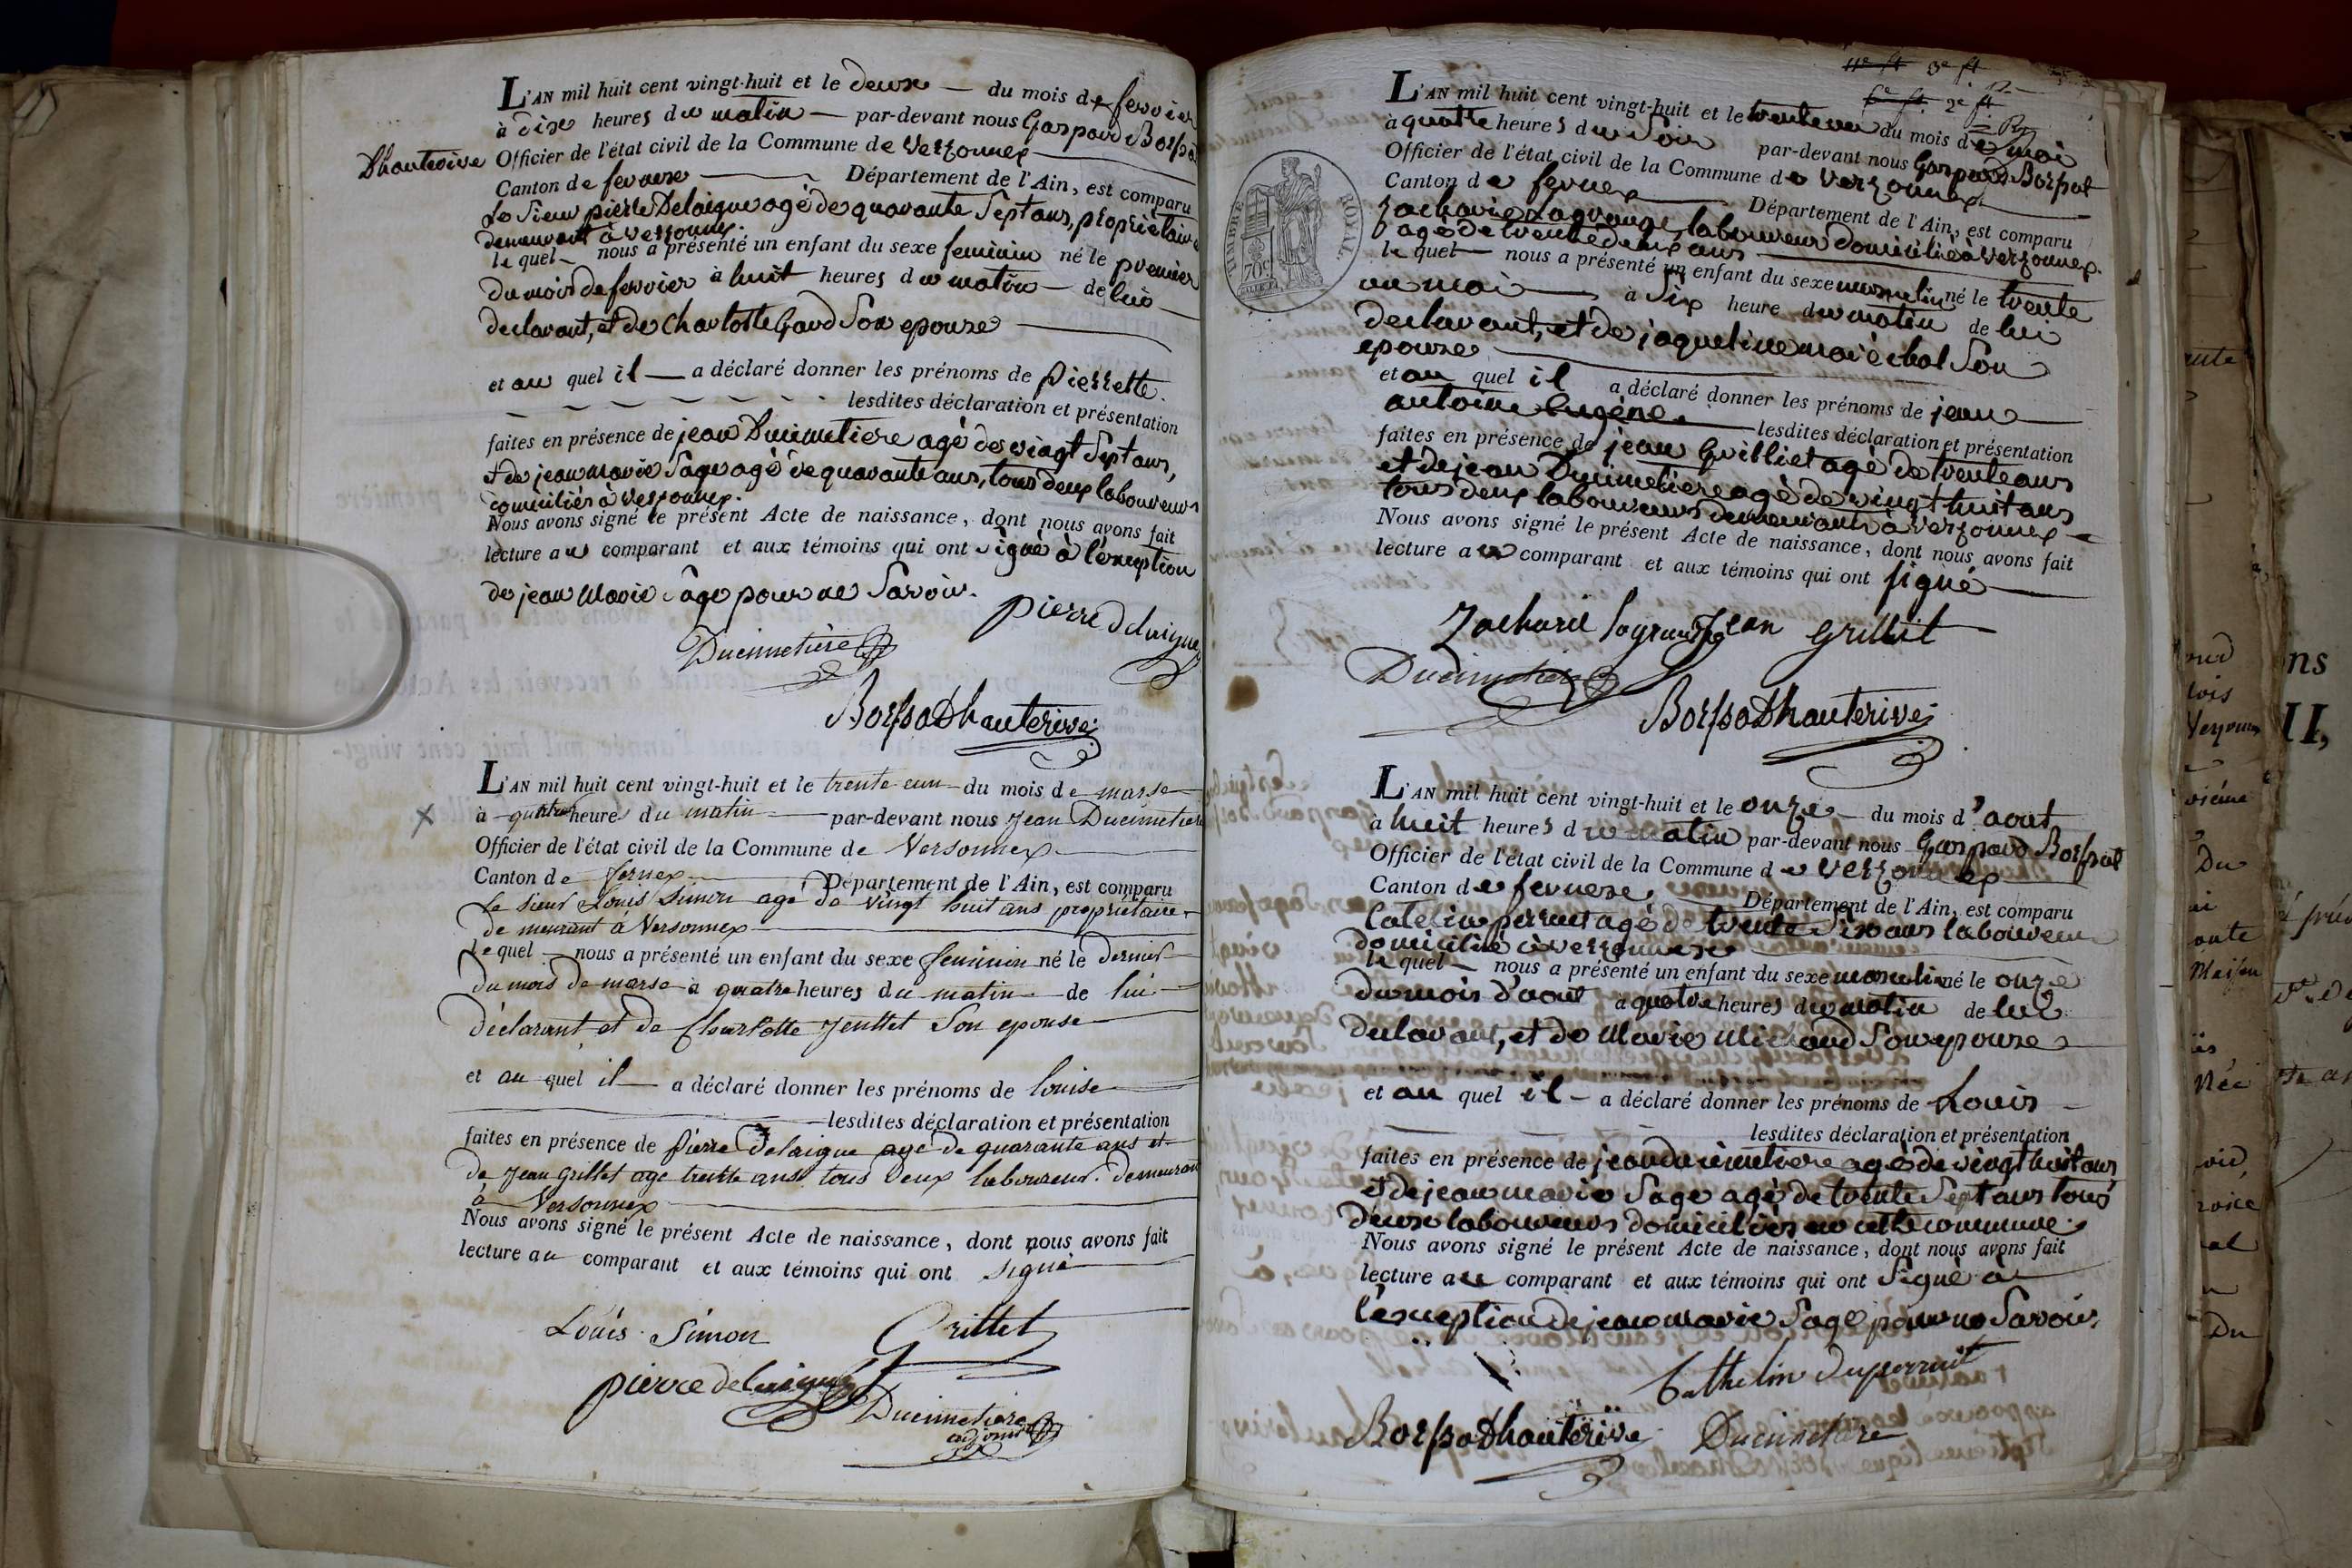 L'AN mil huit cent vingt-huit et le deux du mois de fevrier
à dix heures du matin par-devant nous Gaspard Borsat
Dhauterive Officier de l'état civil de la Commune de Verzonnex
Canton de fernex Département de l'Ain, est comparu
Le Sieur pierre Delaigue agé de quarante Sept ans, propriètaire
demeurant à verzonnex.
le quel nous a présenté un enfant du sexe feminin né le premier
du mois de fevrier à huit heures du matin de lui
declarant, et de Charlotte Gard Son epouze
et au quel il a déclaré donner les prénoms de pierrette.
lesdites déclaration et présentation
faites en présence de jean Ducimetiere agé de vingt Sept ans,
et de jean marie Sage agé de quarante ans, tous deux laboureurs
domiciliés à verzonnex.
Nous avons signé le présent Acte de naissance, dont nous avons fait
lecture au comparant et aux témoins qui ont signé à l'éxeption
de jean Marie Sage pour ne Savoir.
pierre Delaigue
Ducimetière
Borsat Dhauterive
L'AN mil huit cent vingt-huit et le trente eun du mois de marse
à quatre heures du matin par-devant nous Jean Ducimetiere
Officier de l'état civil de la Commune de Versonnex
Canton de fernex Département de l'Ain, est comparu
Le sieur Louis Simon agé de vingt huit ans propriètaire
de meurant à Versonnex
Le quel nous a présenté un enfant du sexe feminin né le Dernier
du mois de marse à quatre heures du matin de lui
déclarant et de Charlotte Jenttet Son epouse
et au quel il a déclaré donner les prénoms de louise
lesdites déclaration et présentation
faites en présence de pierre Delaigue agé de quarante ans et
de Jean Grillet age trentte ans tous deux laboureur. demeurant
à Versonnex
Nous avons signé le présent Acte de naissance, dont nous avons fait
lecture au comparant et aux témoins qui ont signé
Louis Simon Grillet
pierre delaigue
Ducimetiere
adjoint
3e ft
2e ft
TIMBRE ROYAL
70c
L'AN mil huit cent vingt-huit et le trente un du mois de mai
à quatre heures du Soir par-devant nous Gaspard Borsat
Officier de l'état civil de la Commune de Verzonnex
Canton de fernex Département de l'Ain, est comparu
Zacharie Lagrange, laboureur domicilié à Verzonnex.
agé de trente deux ans
le quel nous a présenté un enfant du sexe masculin né le trente
un mai à Six heure du matin de lui
declarant, et de jaqueline maréchal Son
epouze
et au quel il a déclaré donner les prénoms de jean
antoine Eugène.
lesdites déclaration et présentation
faites en présence de jean Grilliet agé de trente ans
et de jean Ducimetiere agé de vingt huit ans
tous deux laboureurs demeurants à verzonnex
Nous avons signé le présent Acte de naissance, dont nous avons fait
lecture au comparant et aux témoins qui ont signé
Zacharie lagrange Jean Grillit
Ducimetiere
Borsat Dhauterive
L'AN mil huit cent vingt-huit et le onze du mois d'aout
à huit heures du matin par-devant nous Gaspard Borsat
Officier de l'état civil de la Commune de verzonnex
Canton de fernex, Département de l'Ain, est comparu
Catelin perrut agé de trente Six ans laboureur
domicilié à verzonnex
le quel nous a présenté un enfant du sexe masculin né le onze
du mois d'aout a quatre heures du matin de lui
declarant, et de Marie Michaud Son epouze
et au quel il a déclaré donner les prénoms de Louis
lesdites déclaration et présentation
faites en présence de jean ducimetiere agé de vingt huit ans
et de jean marie Sage agé de trente Sept ans tous
deux laboureurs domiciliés en cette commune.
Nous avons signé le présent Acte de naissance, dont nous avons fait
lecture au comparant et aux témoins qui ont Signé à
l'éxeption de jean marie Sage pour ne Savoir.
Cathelin Duperruit
Borsat Dhauterive Ducimetière